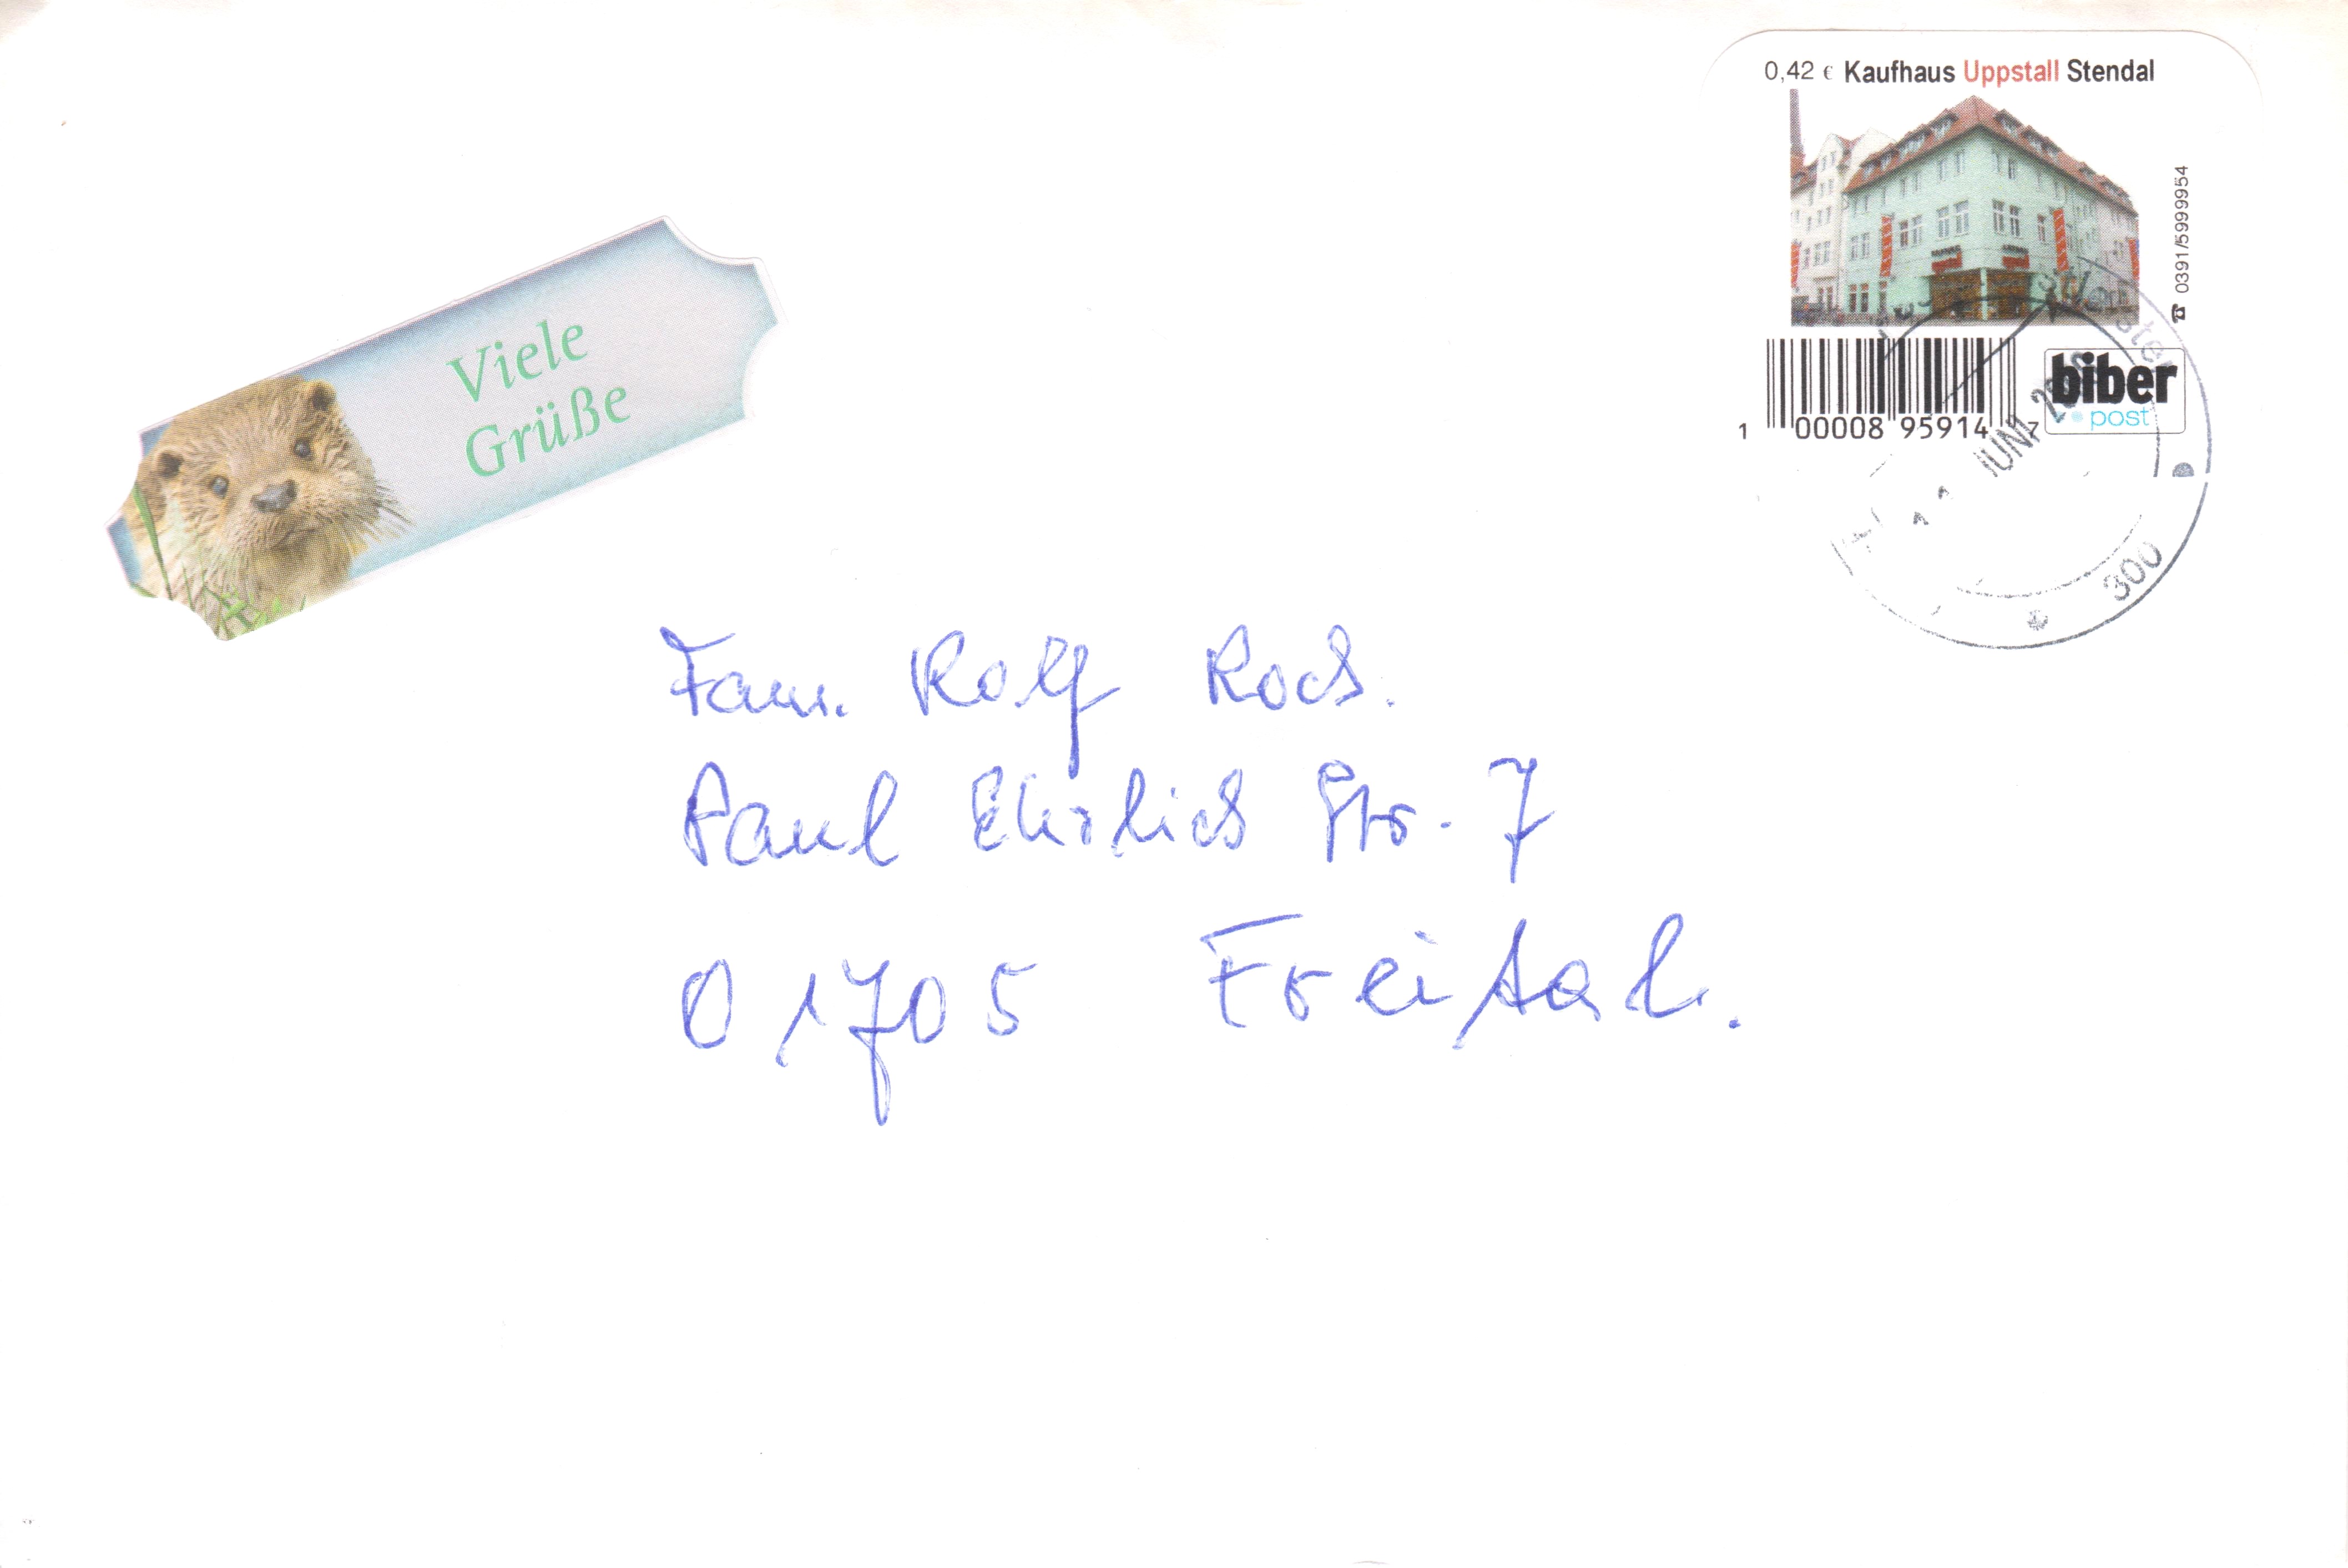 0,42 € Kaufhaus Uppstall Stendal
☎ 0391/5999954
1 00008 95914 7
biber
post
JUNI
300
Viele
Grüße
Fam. Rolf Koch.
Paul Ehrlich Str. 7
01705 Freital.